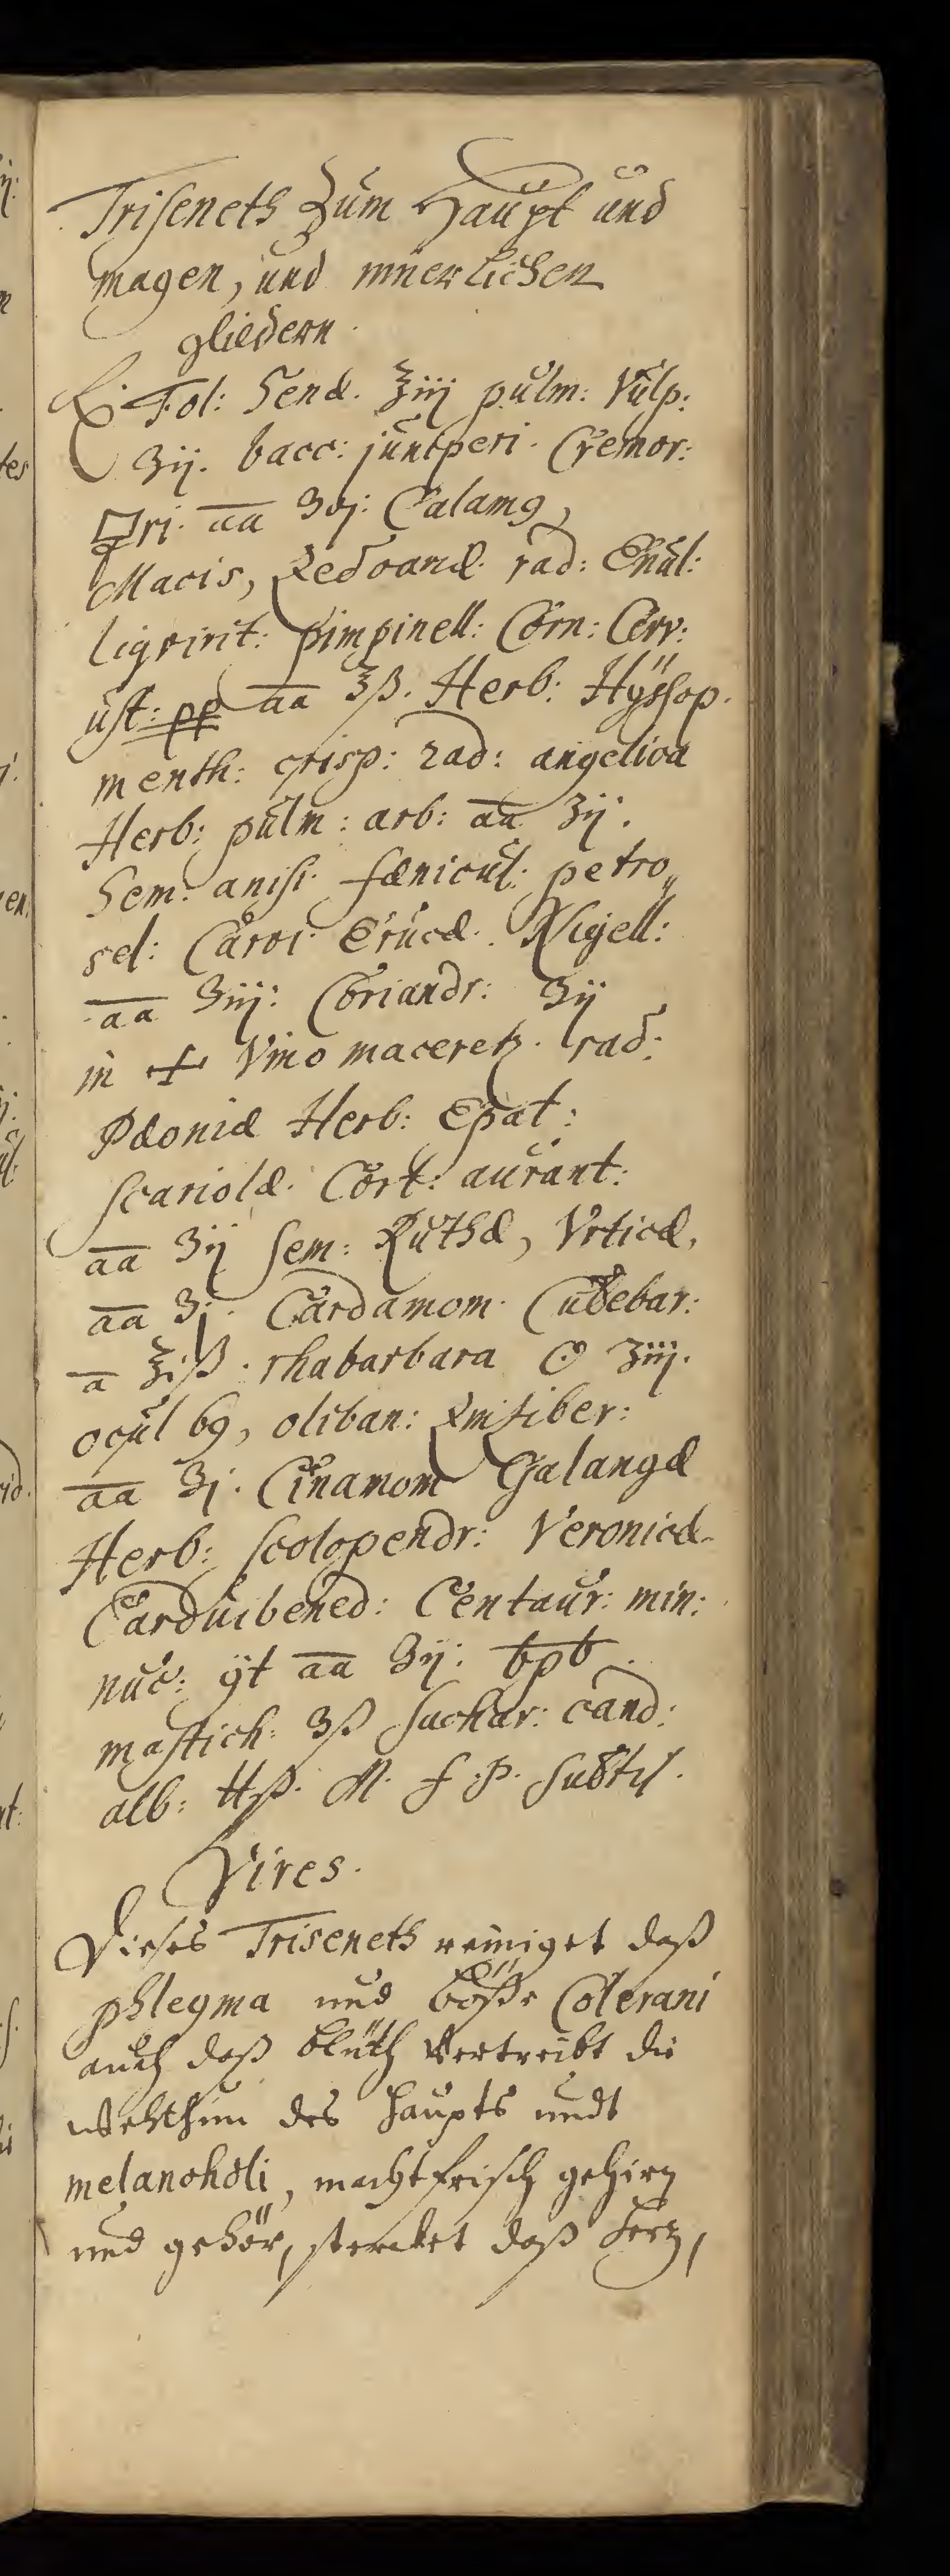 Triseneth Zum Haupt und
magen, und innerlichen
gliedern.
℞. Fol: Senæ. ℥iij pulm: Vulp:
ʒij. bacc: juniperi. Cremor:
🜿ri. aa ʒvj: Calamꝯ,
Macis, Zedoariæ. rad: Enul:
liqvirit: pimpinell: Corn: Cerv:
ust: pp aa ʒß. Herb: Hÿssop.
menth: crisp: rad: angelica
Herb: pulm: arb: aa ʒij.
Sem: anisi. fænicul: petro„
sel: Carvi. Erucæ. Nigell:
aa ʒiij: Coriandr: ʒij
in + Vino maceretz. rad:
Pæoniæ Herb: Epat:
scariolæ. Cort: aurant:
aa ʒij sem: Ruthæ, Vrticæ,
aa ʒj. Cardamom. Cubebar:
a ℥iß. rhabarbara ʒiij.
ocul 69, oliban: Zinsiber:
aa ʒj. Cinamom Galangæ
Herb: scolopendr: Veronicæ
Carduibened: Centaur: min:
nuc: ÿt aa ʒij:
mastich: ʒß sachar: cand:
alb: ℔ß. M. f. P. subtil.
Vires.
Dieses Triseneth reiniget daß
phlegma und böße Colerani
auch daß blüth Vertreibt die
wehthun des haupts undt
melancholi, macht frisch gehirn
und gehör, stercket daß hertz,